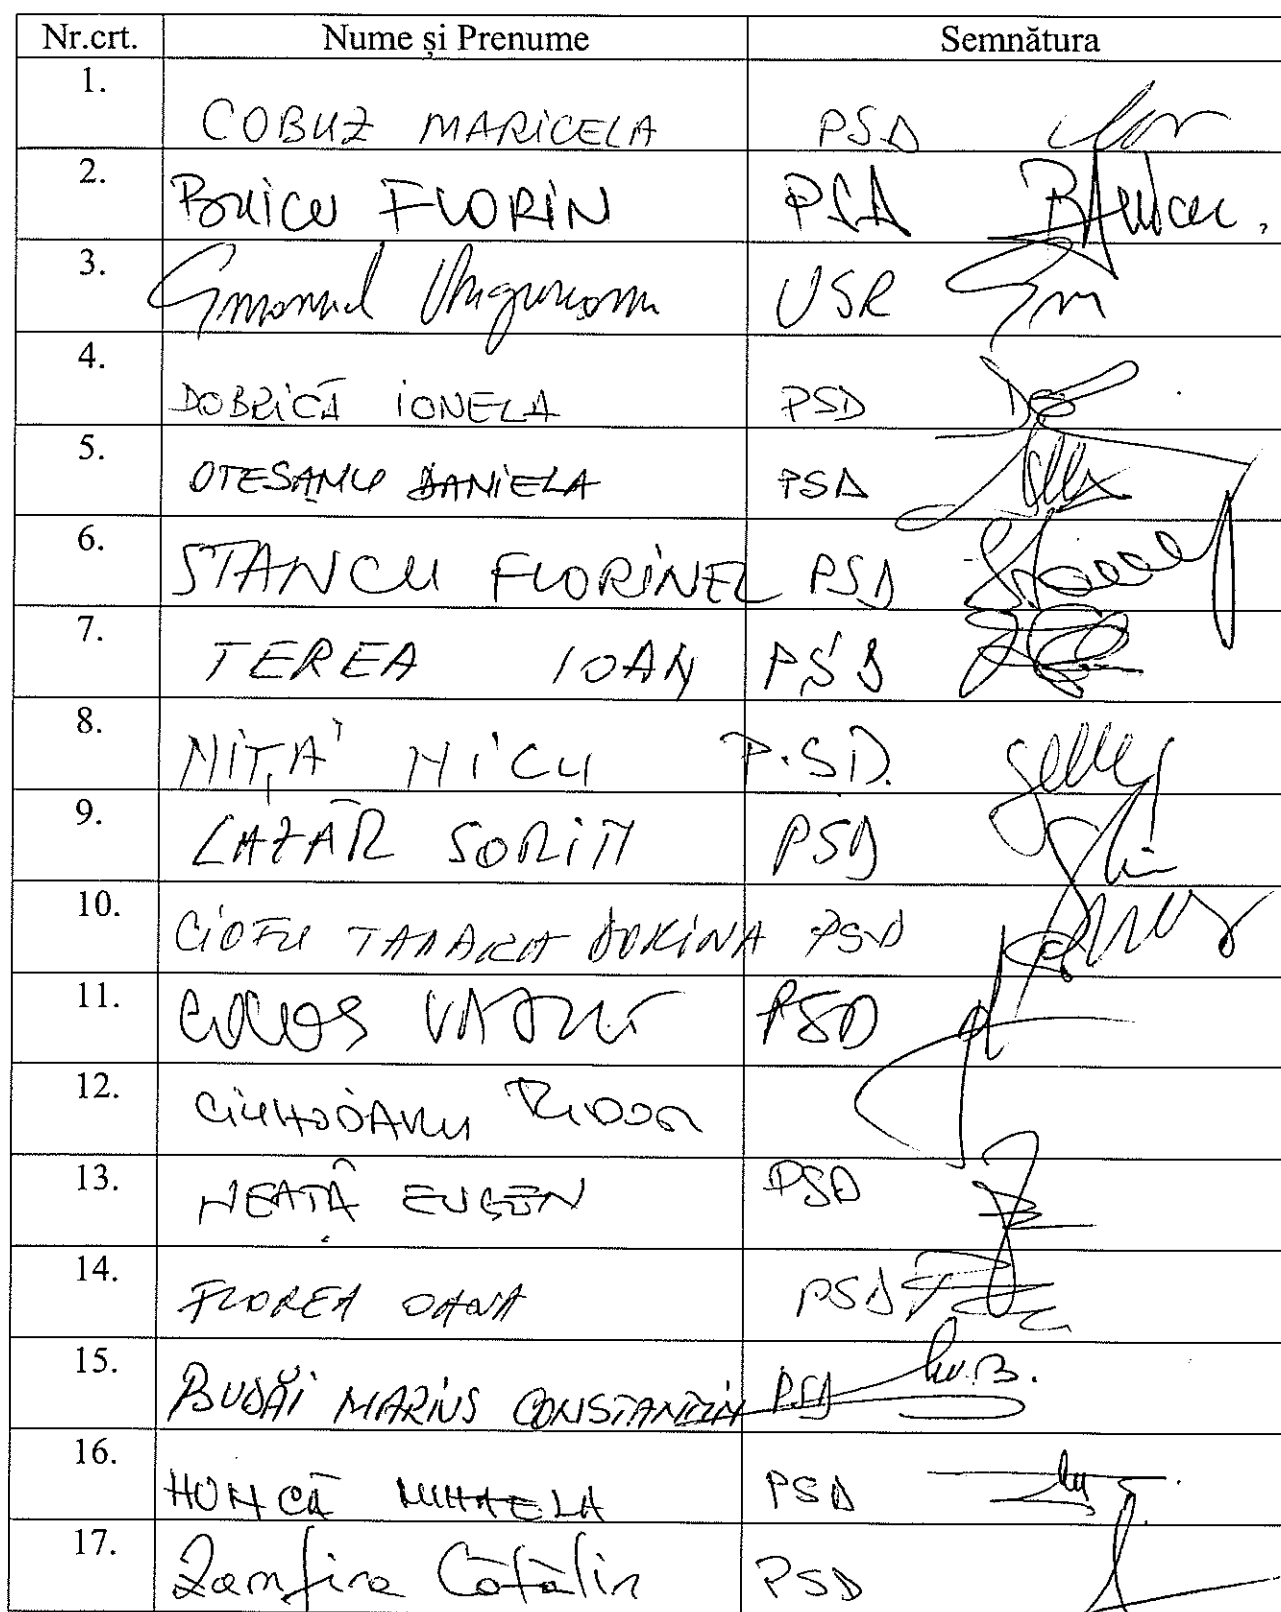 Nr.crt. Nume și Prenume Semnătura
1. COBUZ MARICELA PSD
2. BUICU FLORIN PSD
3. Emanuel Ungureanu USR
4. DOBRICĂ IONELA PSD
5. OTEȘANU DANIELA PSD
6. STANCU FLORINEL PSD
7. TEREA IOAN PSD
8. NIȚĂ NICU P.S.D.
9. LAZĂR SORIN PSD
10. CIOFU TAMARA DORINA PSD
11. COCOȘ PSD
12. CIUHODARU TUDOR
13. NEAȚĂ EUGEN PSD
14. FLOREA OANA PSD
15. BUDĂI MARIUS CONSTANTIN PSD
16. HUNCĂ MIHAELA PSD
17. Zamfira Cătălin PSD